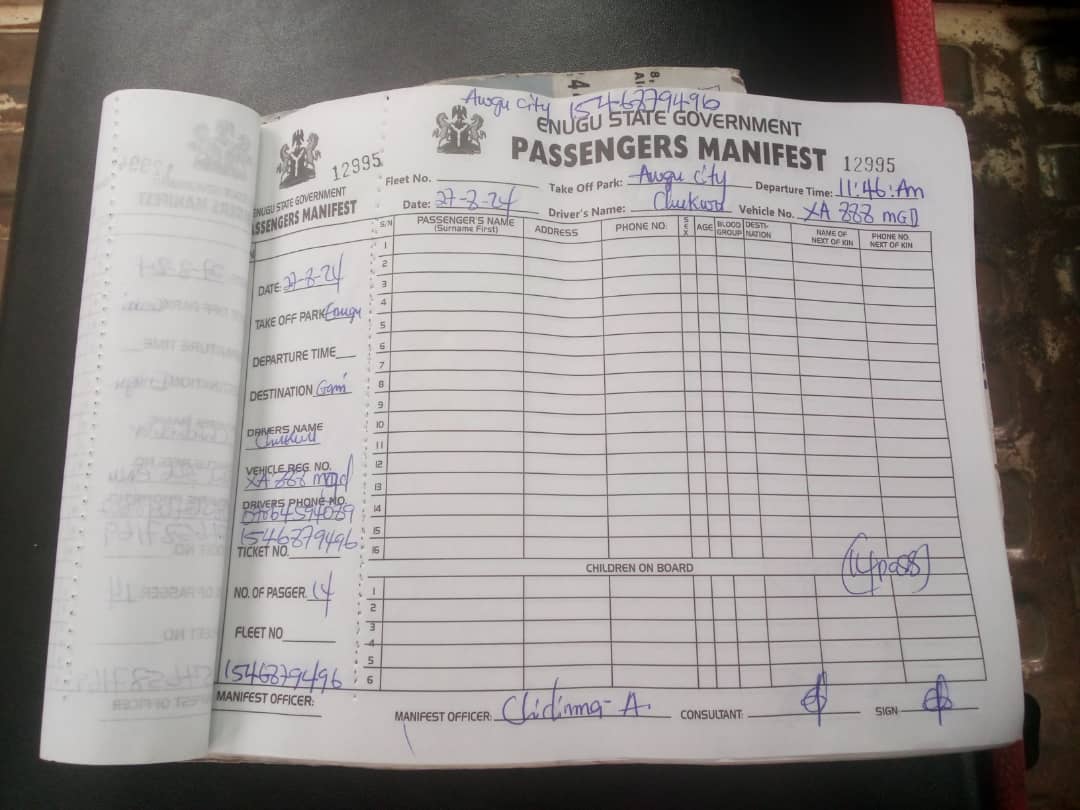 Awgu City 1546879496
ENUGU STATE GOVERNMENT
PASSENGERS MANIFEST 12995
Fleet No. Take Off Park: Awgu City Departure Time: 11:46:Am
Date: 27-8-24 Driver's Name: Chukwu Vehicle No. XA 888 MGD
S/N PASSENGER'S NAME (Surname First) ADDRESS PHONE NO: SEX AGE BLOOD GROUP DESTI-NATION NAME OF NEXT OF KIN PHONE NO. NEXT OF KIN
1
2
3
4
5
6
7
8
9
10
11
12
13
14
15
16
(14pass)
CHILDREN ON BOARD
1
2
3
4
5
6
MANIFEST OFFICER: Chidinma A. CONSULTANT: SIGN
12995
ENUGU STATE GOVERNMENT
PASSENGERS MANIFEST
DATE: 27-8-24
TAKE OFF PARK Enugu
DEPARTURE TIME
DESTINATION
DRIVERS NAME
Chukwu
VEHICLE REG. NO.
XA 888 mgd
DRIVERS PHONE NO.
07064594089
1546879496
TICKET NO.
NO. OF PASGER. 14
FLEET NO
1546879496
MANIFEST OFFICER: